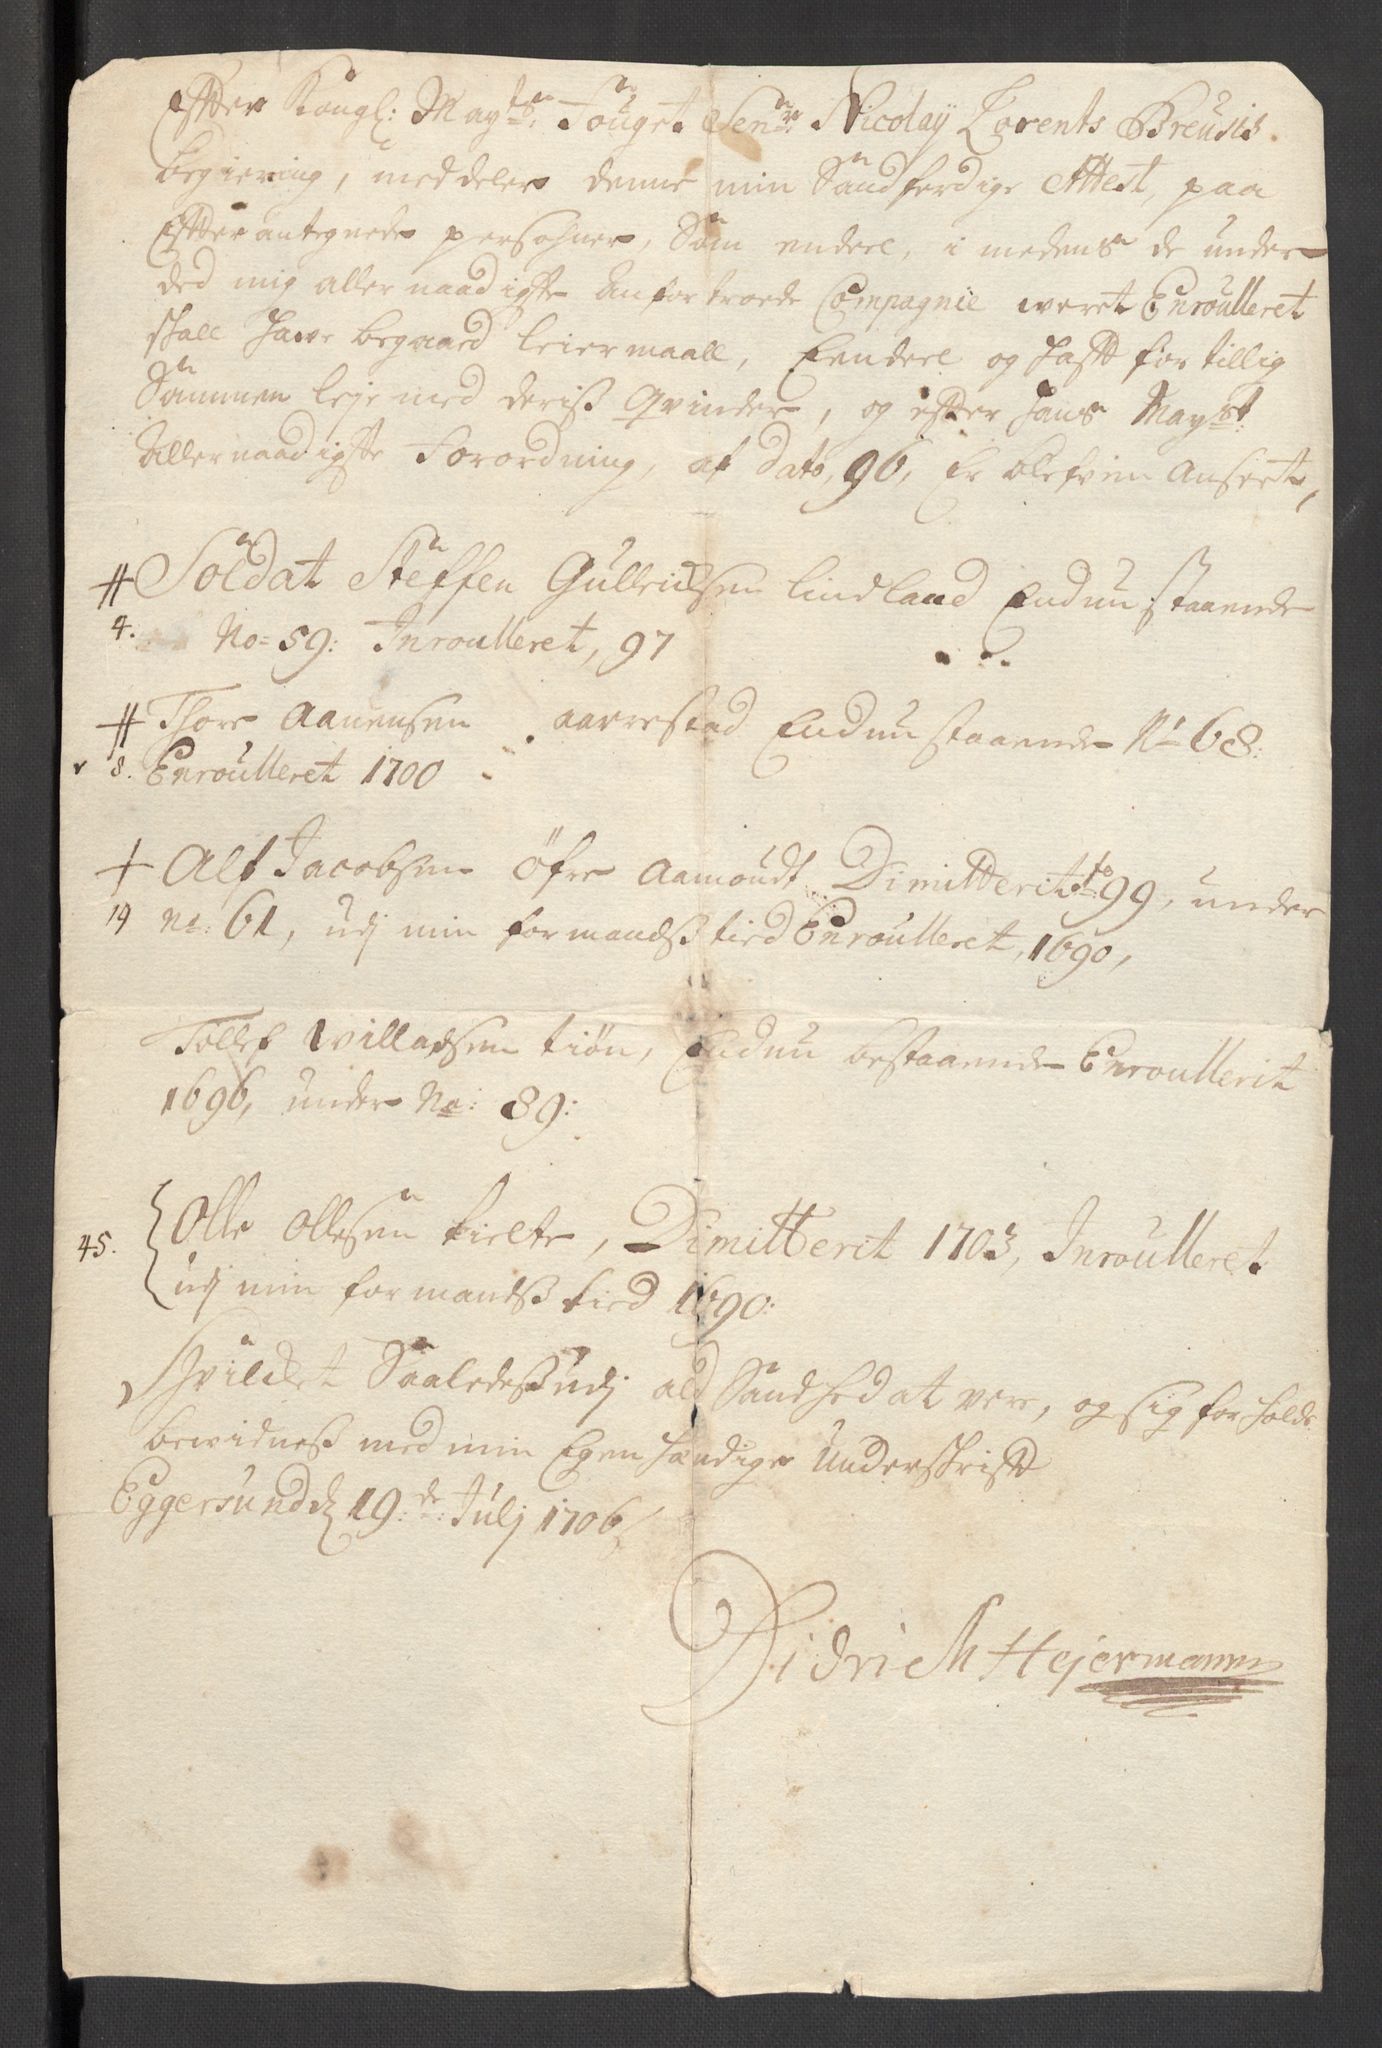 Effter Kongl: Mayts: Fougt Senr: Nicolay Lorents Breusis
begiering, meddeles denne min Sandferdige Attest, paa
Effterantegnede persohner, Som endeel, i medens de under
ded mig aller naadigste Anfortroede Compagnie weret Enroulleret
skall hawe begaaed leiermaall, Eendeel og hafft for tillig
Sammen leje med deriss Qvinder, og efter Hans Mayst:
Allernaadigste Forordning, af dato, 96, Er blefven Anseet,
# Soldat Steffen Gulleichsen lindland Endnu staaende
4. No= 59: Inroulleret, 97
# Thore Aanensen aarrestad Endnu staaende No 68:
8. Enroulleret 1700
+ Alf Jacobsen Öfre Aamoudt Dimitterit ao 99, under
19 No: 61, udj min formandss tied Enroulleret, 1690,
Tollef Willadsen tiøn, Endnu bestaaende Enroullerit
1696, under No: 89:
45. Olle Ollesen kielte, Dimitterit 1703, Inroulleret
udj min formandss tied 1690:
Hvilcket Saaledess udj ald Sandhed at vere, og sig forholde
bewidness med min Egenhændige Underskrifft
Eggersund d 19:de: Julj 1706
Didrich Hejermann